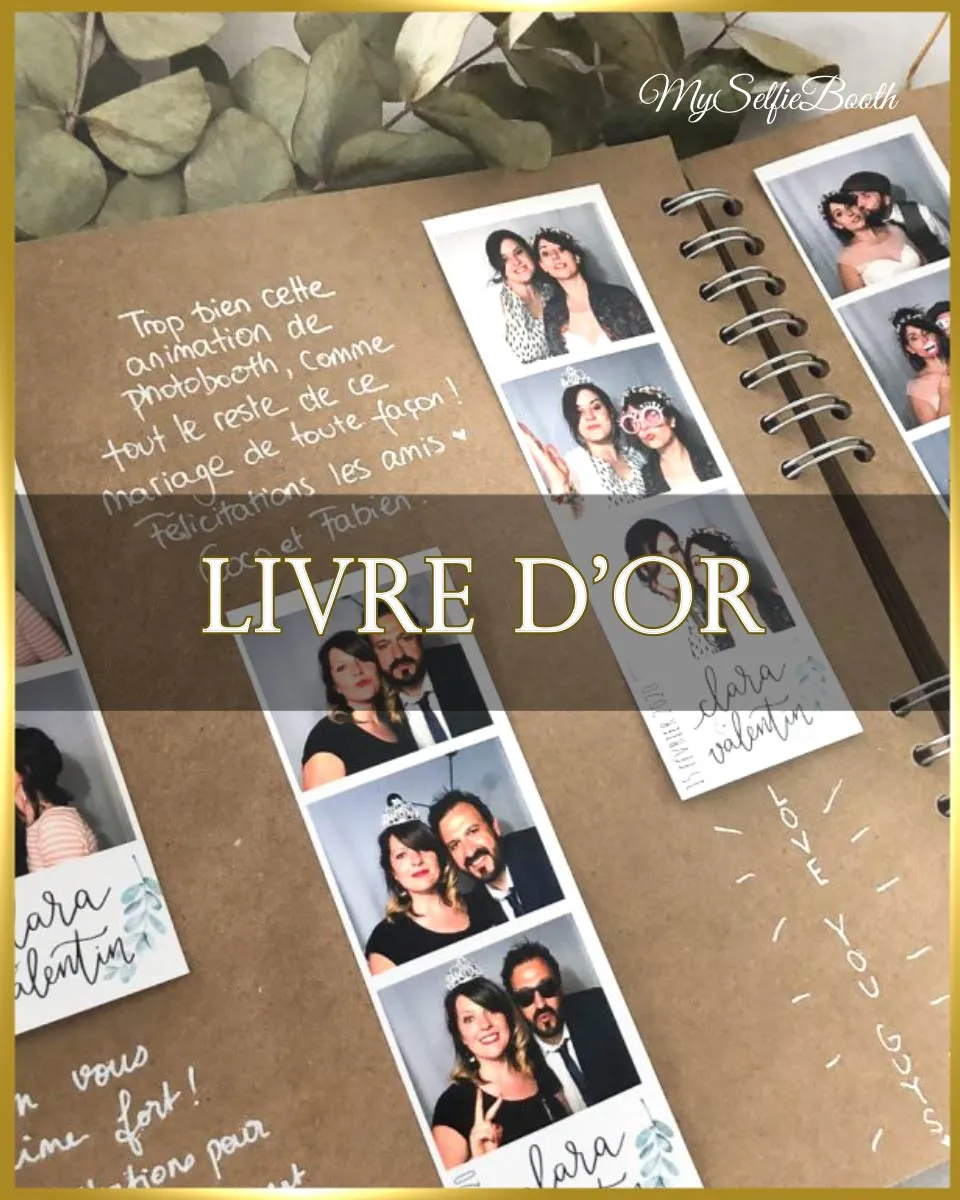 MySelfieBooth
Trop bien cette
animation de
photobooth, comme
tout le reste de ce
mariage de toute façon !
Félicitations les amis ♥
Coco et Fabien.
LIVRE D’OR
clara
valentin
LOVE
YOU
GUYS
lara
alentin
n vous
ime fort !
tations pour
lara